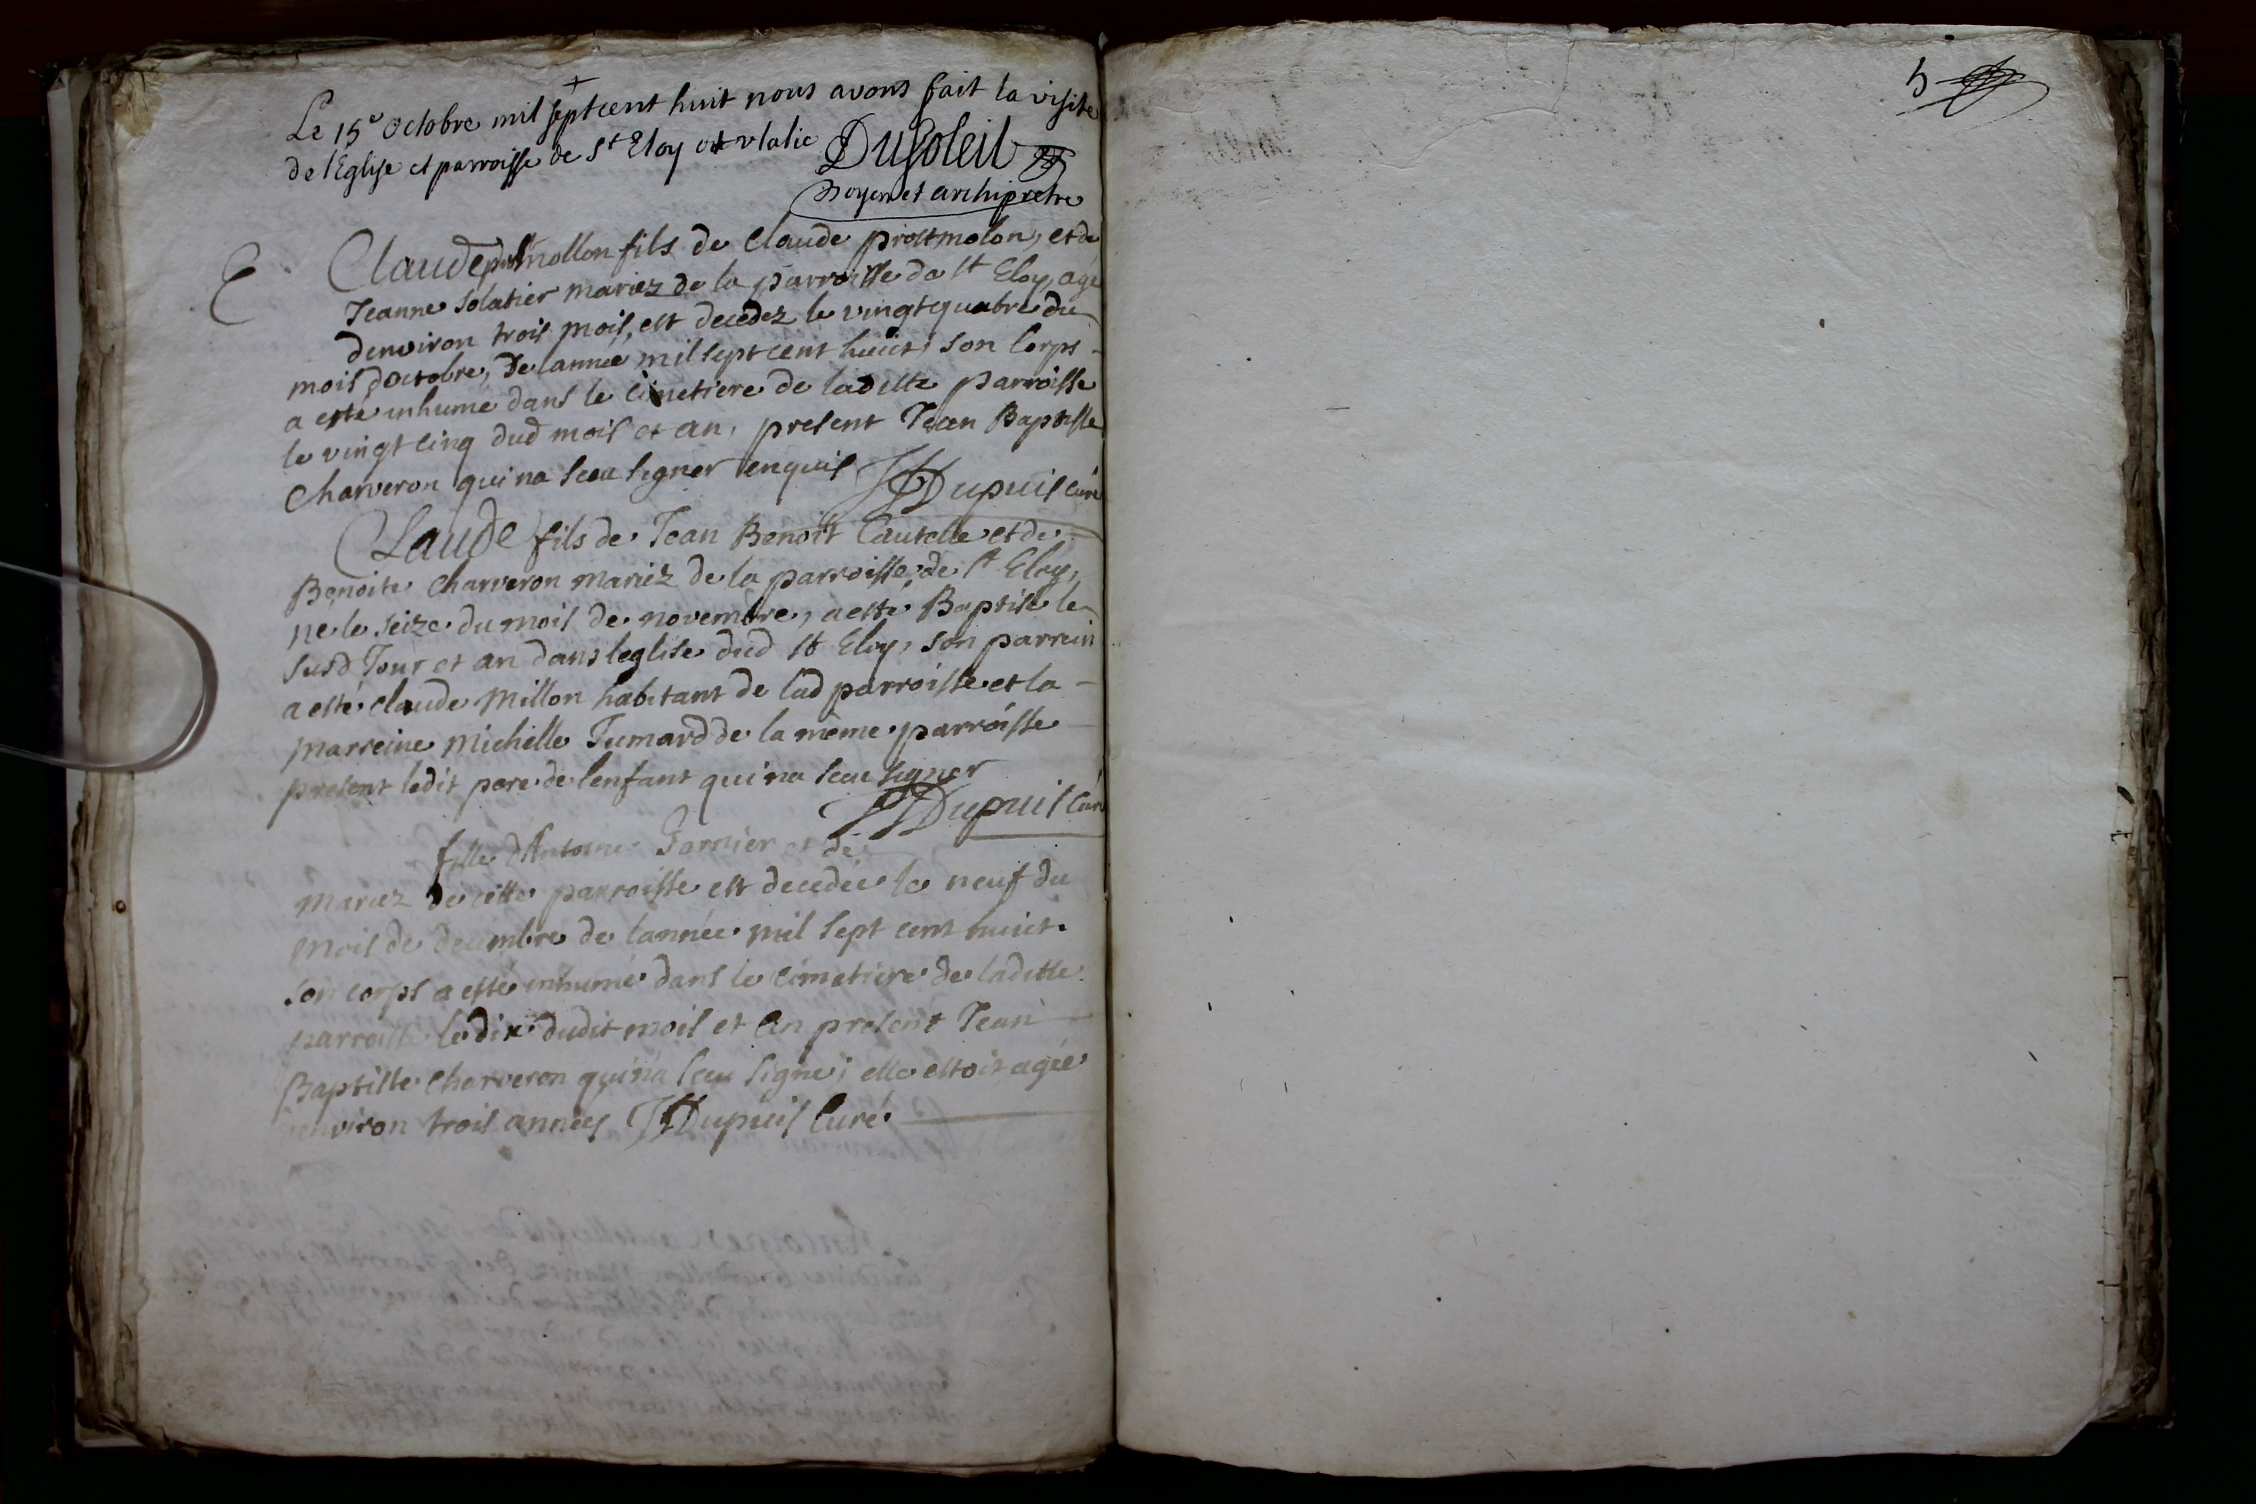 +
Le 15e octobre mil sept cent huit nous avons fait la visite
de l'Eglise et parroisse de St Eloy
DuSoleil
Doyen et archipretre
Claude fils de Claude prostmolon, et de
Jeanne solatier mariez de la parroisse de st Eloy, agé
denviron trois mois, est decedez le vingtquatre du
mois doctobre, De lannee mil sept cent huict, son Corps
a esté inhumé dans le Cimetiere de laditte parroisse
le vingt cinq dud mois et an, present Jean Baptiste
Charveron qui na sceu signer enquis JDupuis Curé
Claude fils de Jean Benoit Cautelle et de
Benoite Charveron mariez de la parroisse de st Eloy,
ne le seize du mois de novembre, a esté Baptisé le
susd Jour et an dans leglise dud st Eloy, son parrein
a esté Claude Millon habitant de lad parroisse et la
marreine Michelle Jumard de la même parroisse
present ledit pere de lenfant qui na sceu signer
JDupuis Curé
fille dAntoine Garnier et de
mariez de cette parroisse est decedée le neuf du
mois de decembre de lannée mil sept cent huict.
son corps a esté inhumé dans le cimetiere de laditte
parroisse le dix dudit mois et an present Jean
Baptiste Charveron qui na sceu signé; elle estoit agée
denviron trois années JDupuis Curé
5